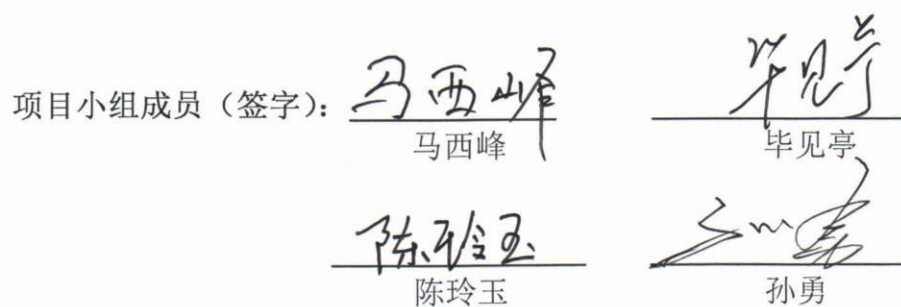 项目小组成员（签字）: 马西峰 毕见亭
马西峰 毕见亭
陈玲玉
陈玲玉 孙勇